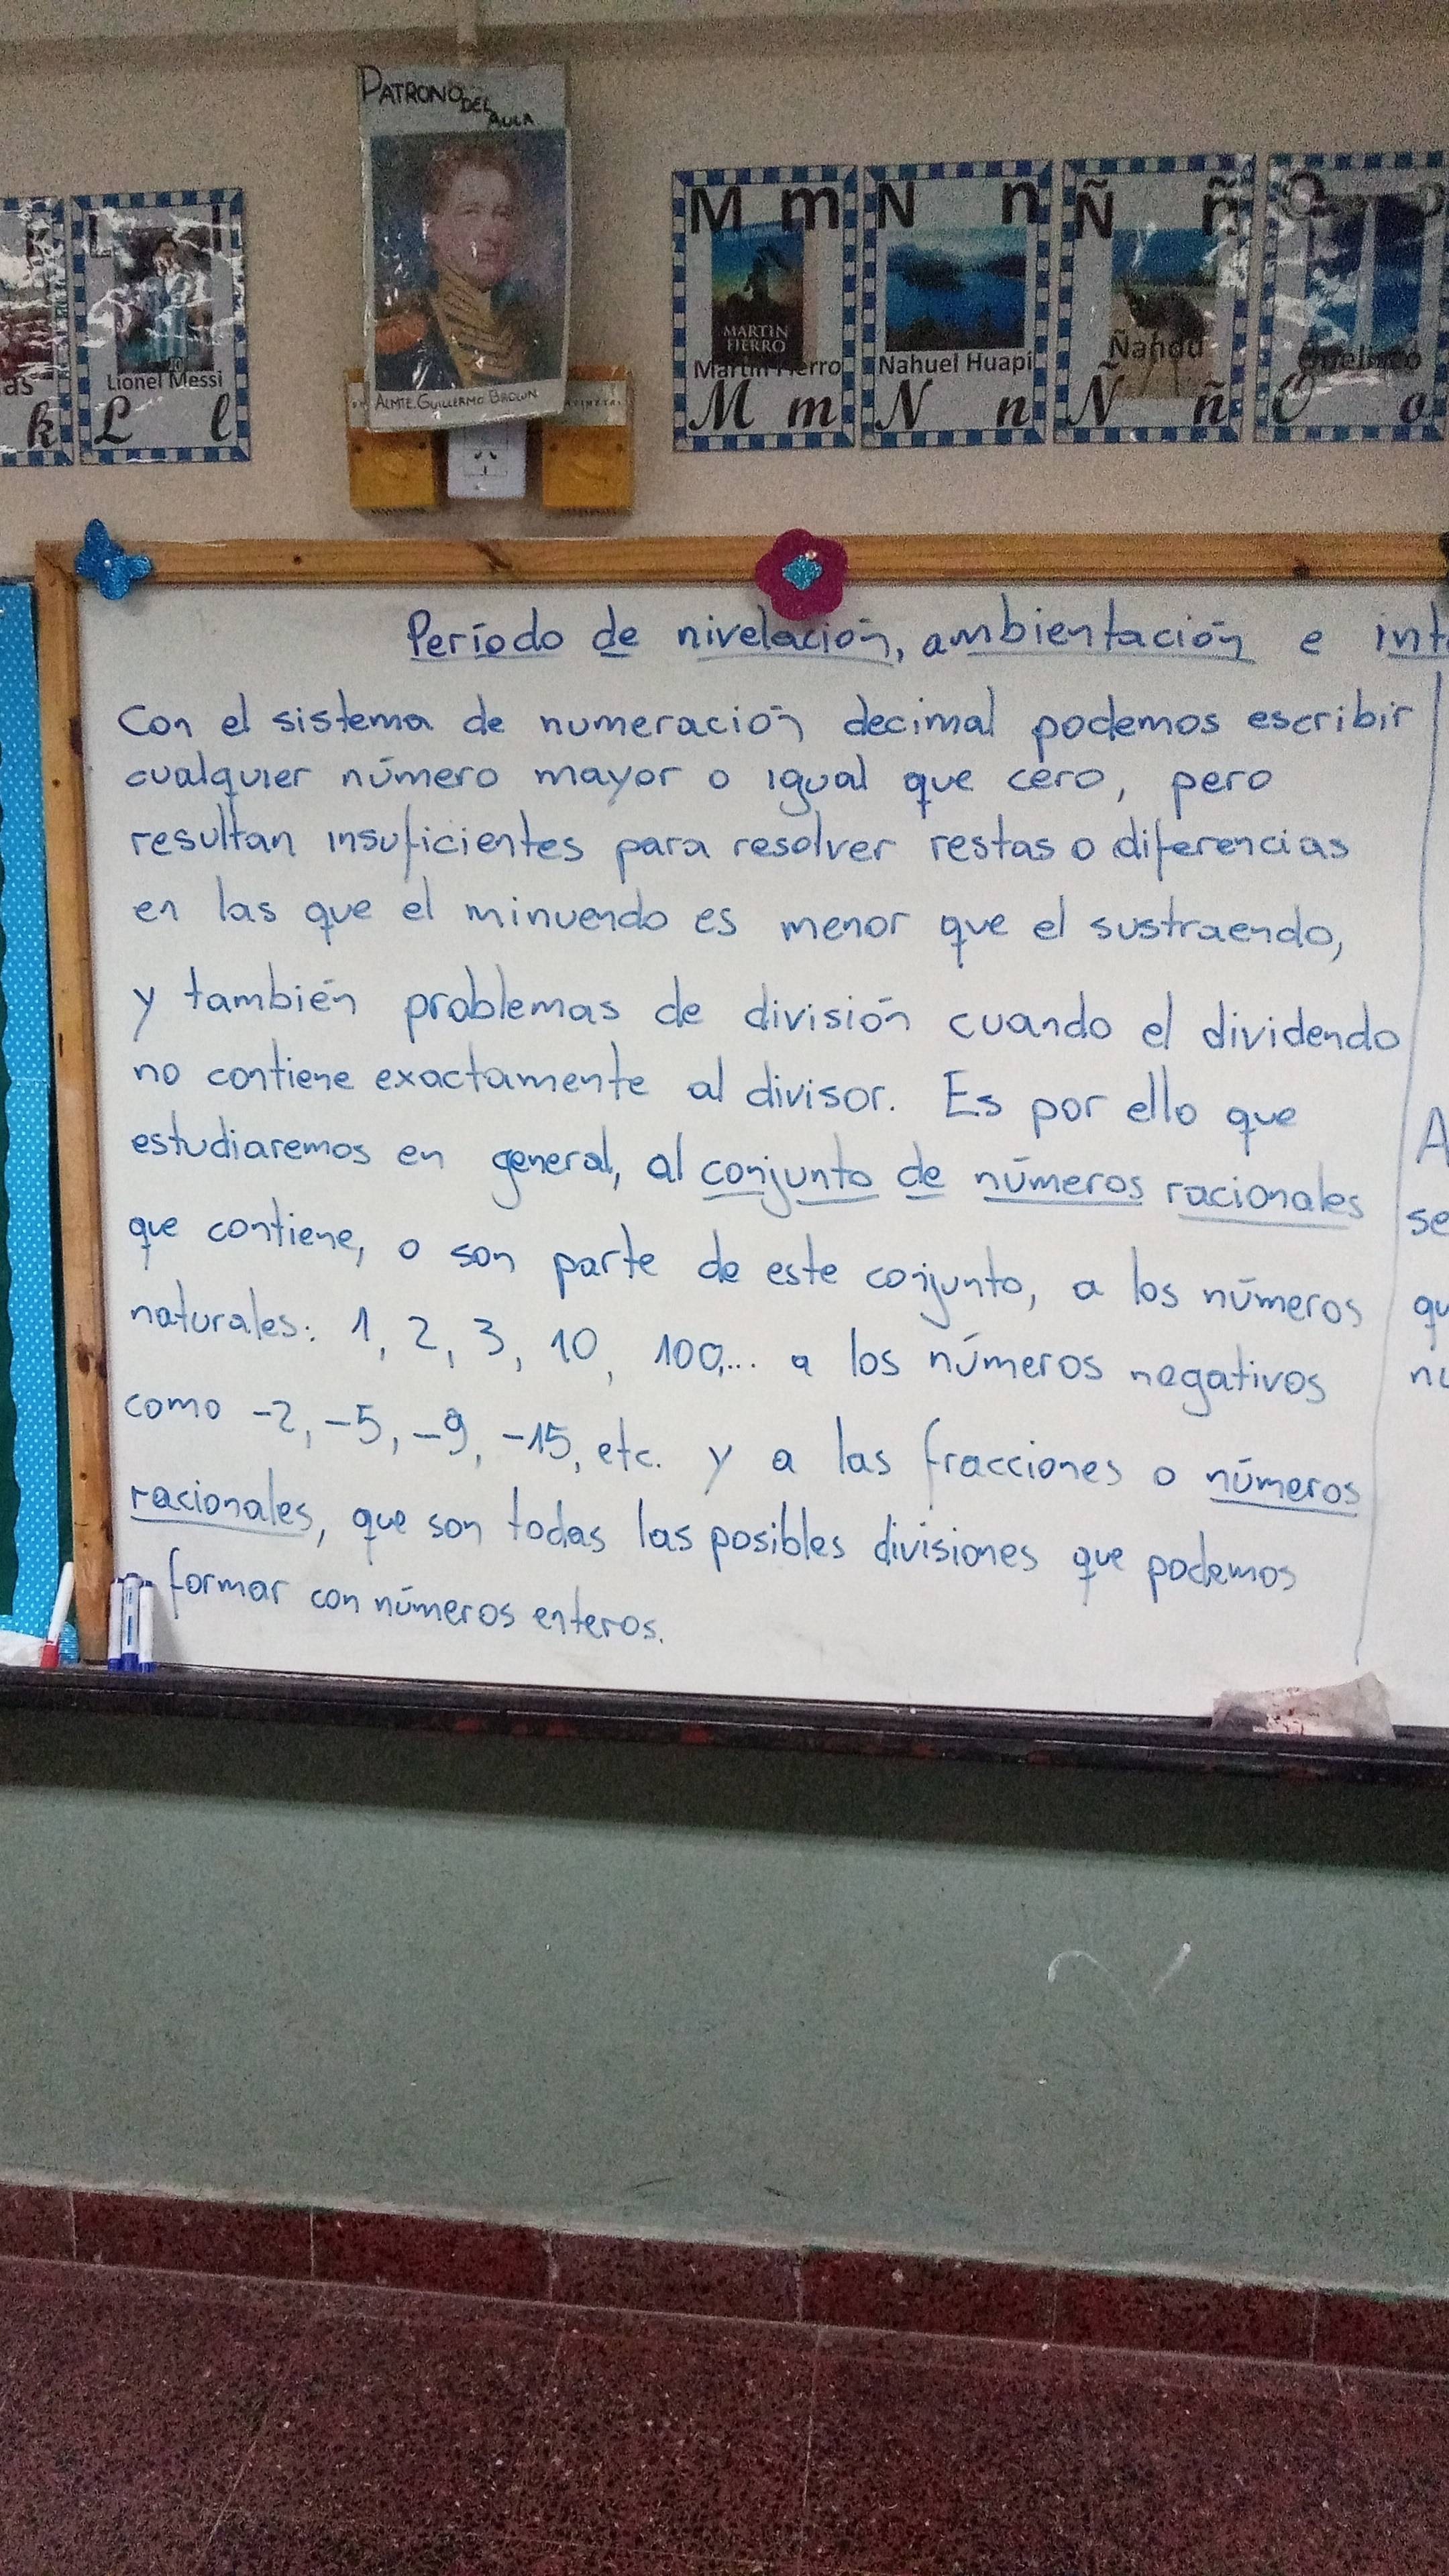 PATRONO DEL AULA
ALMTE. GUILLERMO BROWN
as
k
L l
Lionel Messi
L l
M m
MARTÍN
FIERRO
Martín Fierro
M m
N n
Nahuel Huapi
N n
Ñ ñ
Ñandú
Ñ ñ
O o
O o
Período de nivelación, ambientación e
Con el sistema de numeración decimal podemos escribir
cualquier número mayor o igual que cero, pero
resultan insuficientes para resolver restas o diferencias
en las que el minuendo es menor que el sustraendo,
y también problemas de división cuando el dividendo
no contiene exactamente al divisor. Es por ello que
estudiaremos en general, al conjunto de números racionales
que contiene, o son parte de este conjunto, a los números
naturales: 1, 2, 3, 10, 100,... a los números negativos
como -2, -5, -9, -15, etc. y a las fracciones o números
racionales, que son todas las posibles divisiones que podemos
formar con números enteros.
A
se